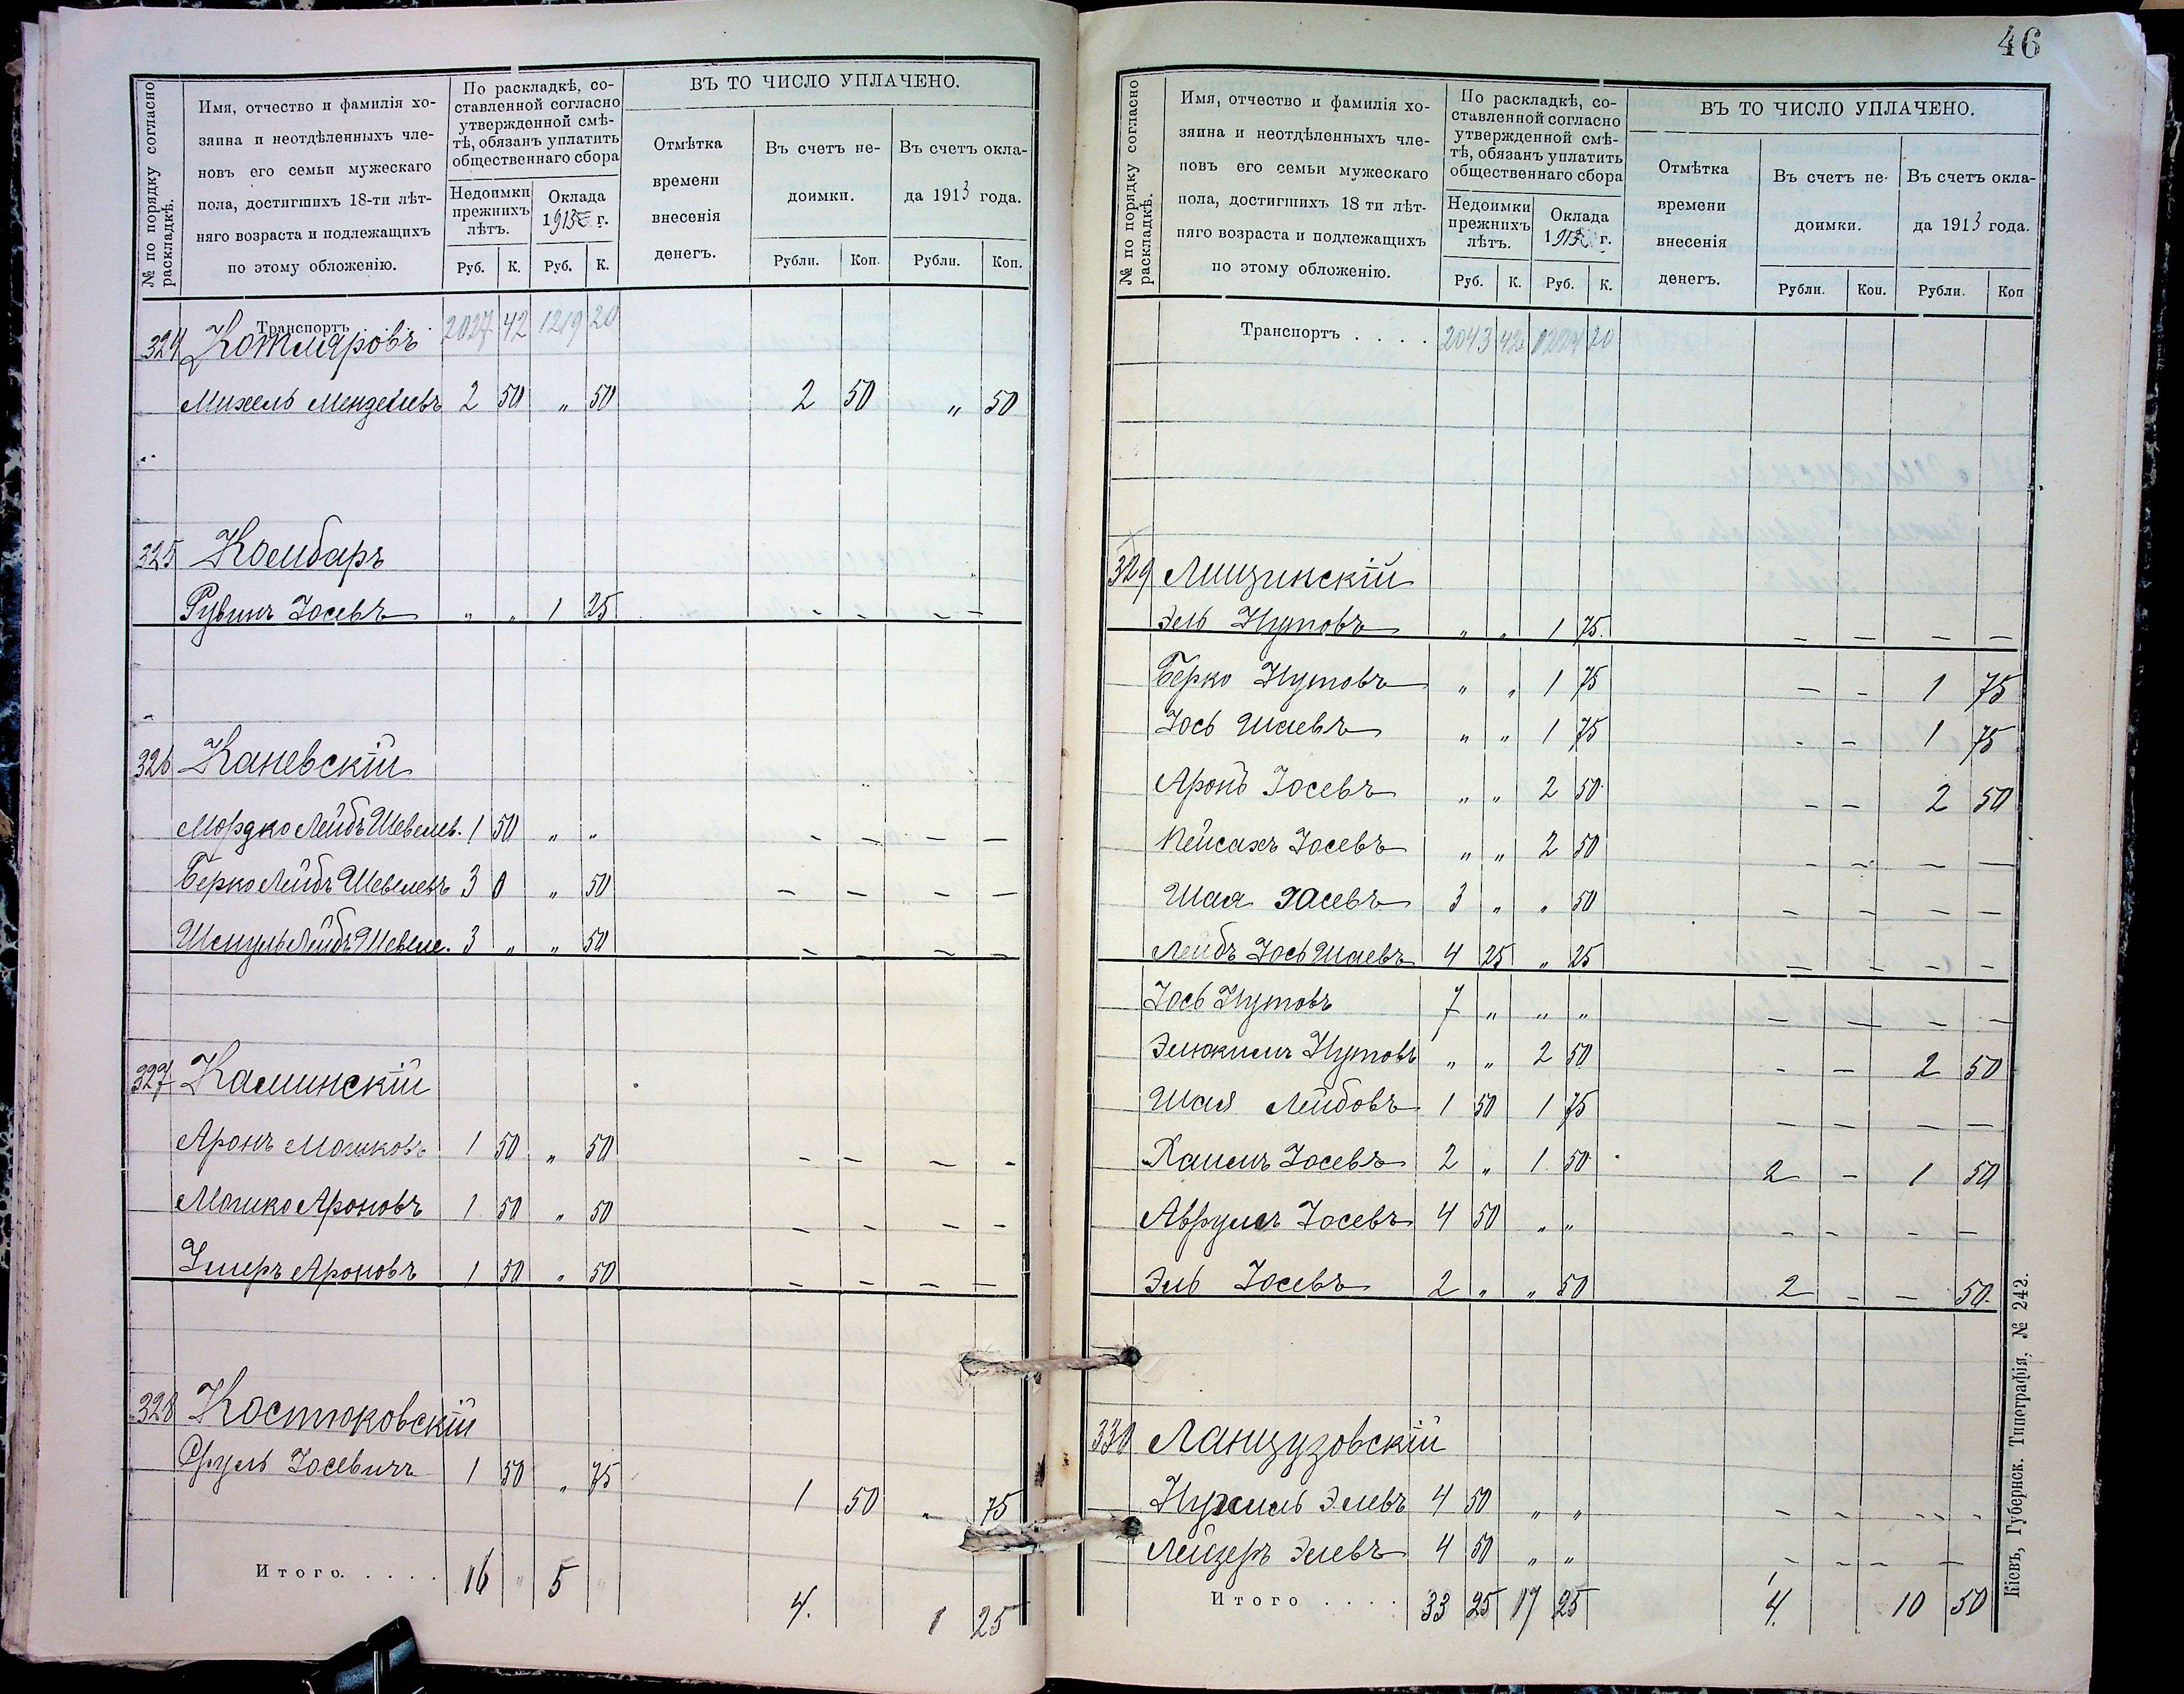 46
№ по порядку согласно раскладкѣ.
Имя, отчество и фамилія хо-
зяина и неотдѣленныхъ чле-
новъ его семьи мужескаго
пола, достигшихъ 18-ти лѣт-
няго возраста и подлежащихъ
по этому обложенію.
По раскладкѣ, со-
ставленной согласно
утвержденной смѣ-
тѣ, обязанъ уплатить
общественнаго сбора
Недоимки прежнихъ лѣтъ.
Оклада 1913 г.
Руб. К. Руб. К.
ВЪ ТО ЧИСЛО УПЛАЧЕНО.
Отмѣтка
времени
внесенія
денегъ.
Въ счетъ не-
доимки.
Въ счетъ окла-
да 1913 года.
Рубли. Коп. Рубли. Коп.
Транспортъ 2027 42 1219 20
324 Котляровъ
Михель Менделевъ 2 50 " 50 2 50 " 50
325 Колибаръ
Рувинъ Іосевъ " " 1 25 - - - -
326 Каневскій
Мордко Лейбъ Шевелев. 1 50 " " - - - -
Берко Лейбъ Шевелевъ 3 0 " 50 - - - -
Шмуль Лейбъ Шевеле. 3 " " 50 - - - -
327 Каминскій
Аронъ Мошковъ 1 50 " 50 - - - -
Мошко Ароновъ 1 50 " 50 - - - -
Ушеръ Ароновъ 1 50 " 50 - - - -
328 Костюковскій
Сруль Іосевичъ 1 50 " 75 1 50 " 75
Итого. . . . . 16 " 5 " 4. 1 25
№ по порядку согласно раскладкѣ.
Имя, отчество и фамилія хо-
зяина и неотдѣленныхъ чле-
новъ его семьи мужескаго
пола, достигшихъ 18 ти лѣт-
няго возраста и подлежащихъ
по этому обложенію.
По раскладкѣ, со-
ставленной согласно
утвержденной смѣ-
тѣ, обязанъ уплатить
общественнаго сбора
Недоимки прежнихъ лѣтъ.
Оклада 1913 г.
Руб. К. Руб. К.
ВЪ ТО ЧИСЛО УПЛАЧЕНО.
Отмѣтка
времени
внесенія
денегъ.
Въ счетъ не-
доимки.
Въ счетъ окла-
да 1913 года.
Рубли. Коп. Рубли. Коп
Транспортъ . . . . 2043 42 1224 20
329 Лищинскій
Эль Нутовъ " " 1 75. - - - -
Берко Нутовъ " " 1 75 - - 1 75
Іось Шаевъ " " 1 75 - - 1 75
Аронъ Іосевъ " " 2 50 - - 2 50
Пейсахъ Іосевъ " " 2 50 - - - -
Шая Іосевъ 3 " " 50 - - - -
Лейбъ Іось Шаевъ 4 25 " 25 - - - -
Іось Нутовъ 7 " " " - - - -
Элюкимъ Нутовъ " " 2 50 - - 2 50
Шая Лейбовъ 1 50 1 75 - - - -
Хаимъ Іосевъ 2 " 1 50 2 - 1 50
Аврумъ Іосевъ 4 50 " " - - - -
Эль Іосевъ 2 " " 50 2 - - 50.
330 Ланцузовскій
Нухимъ Элевъ 4 50 " " - - - -
Лейзеръ Элевъ 4 50 " " - - - -
Итого . . . . 33 25 17 25 4. 10 50
Кіевъ, Губернск. Типографія, № 242.